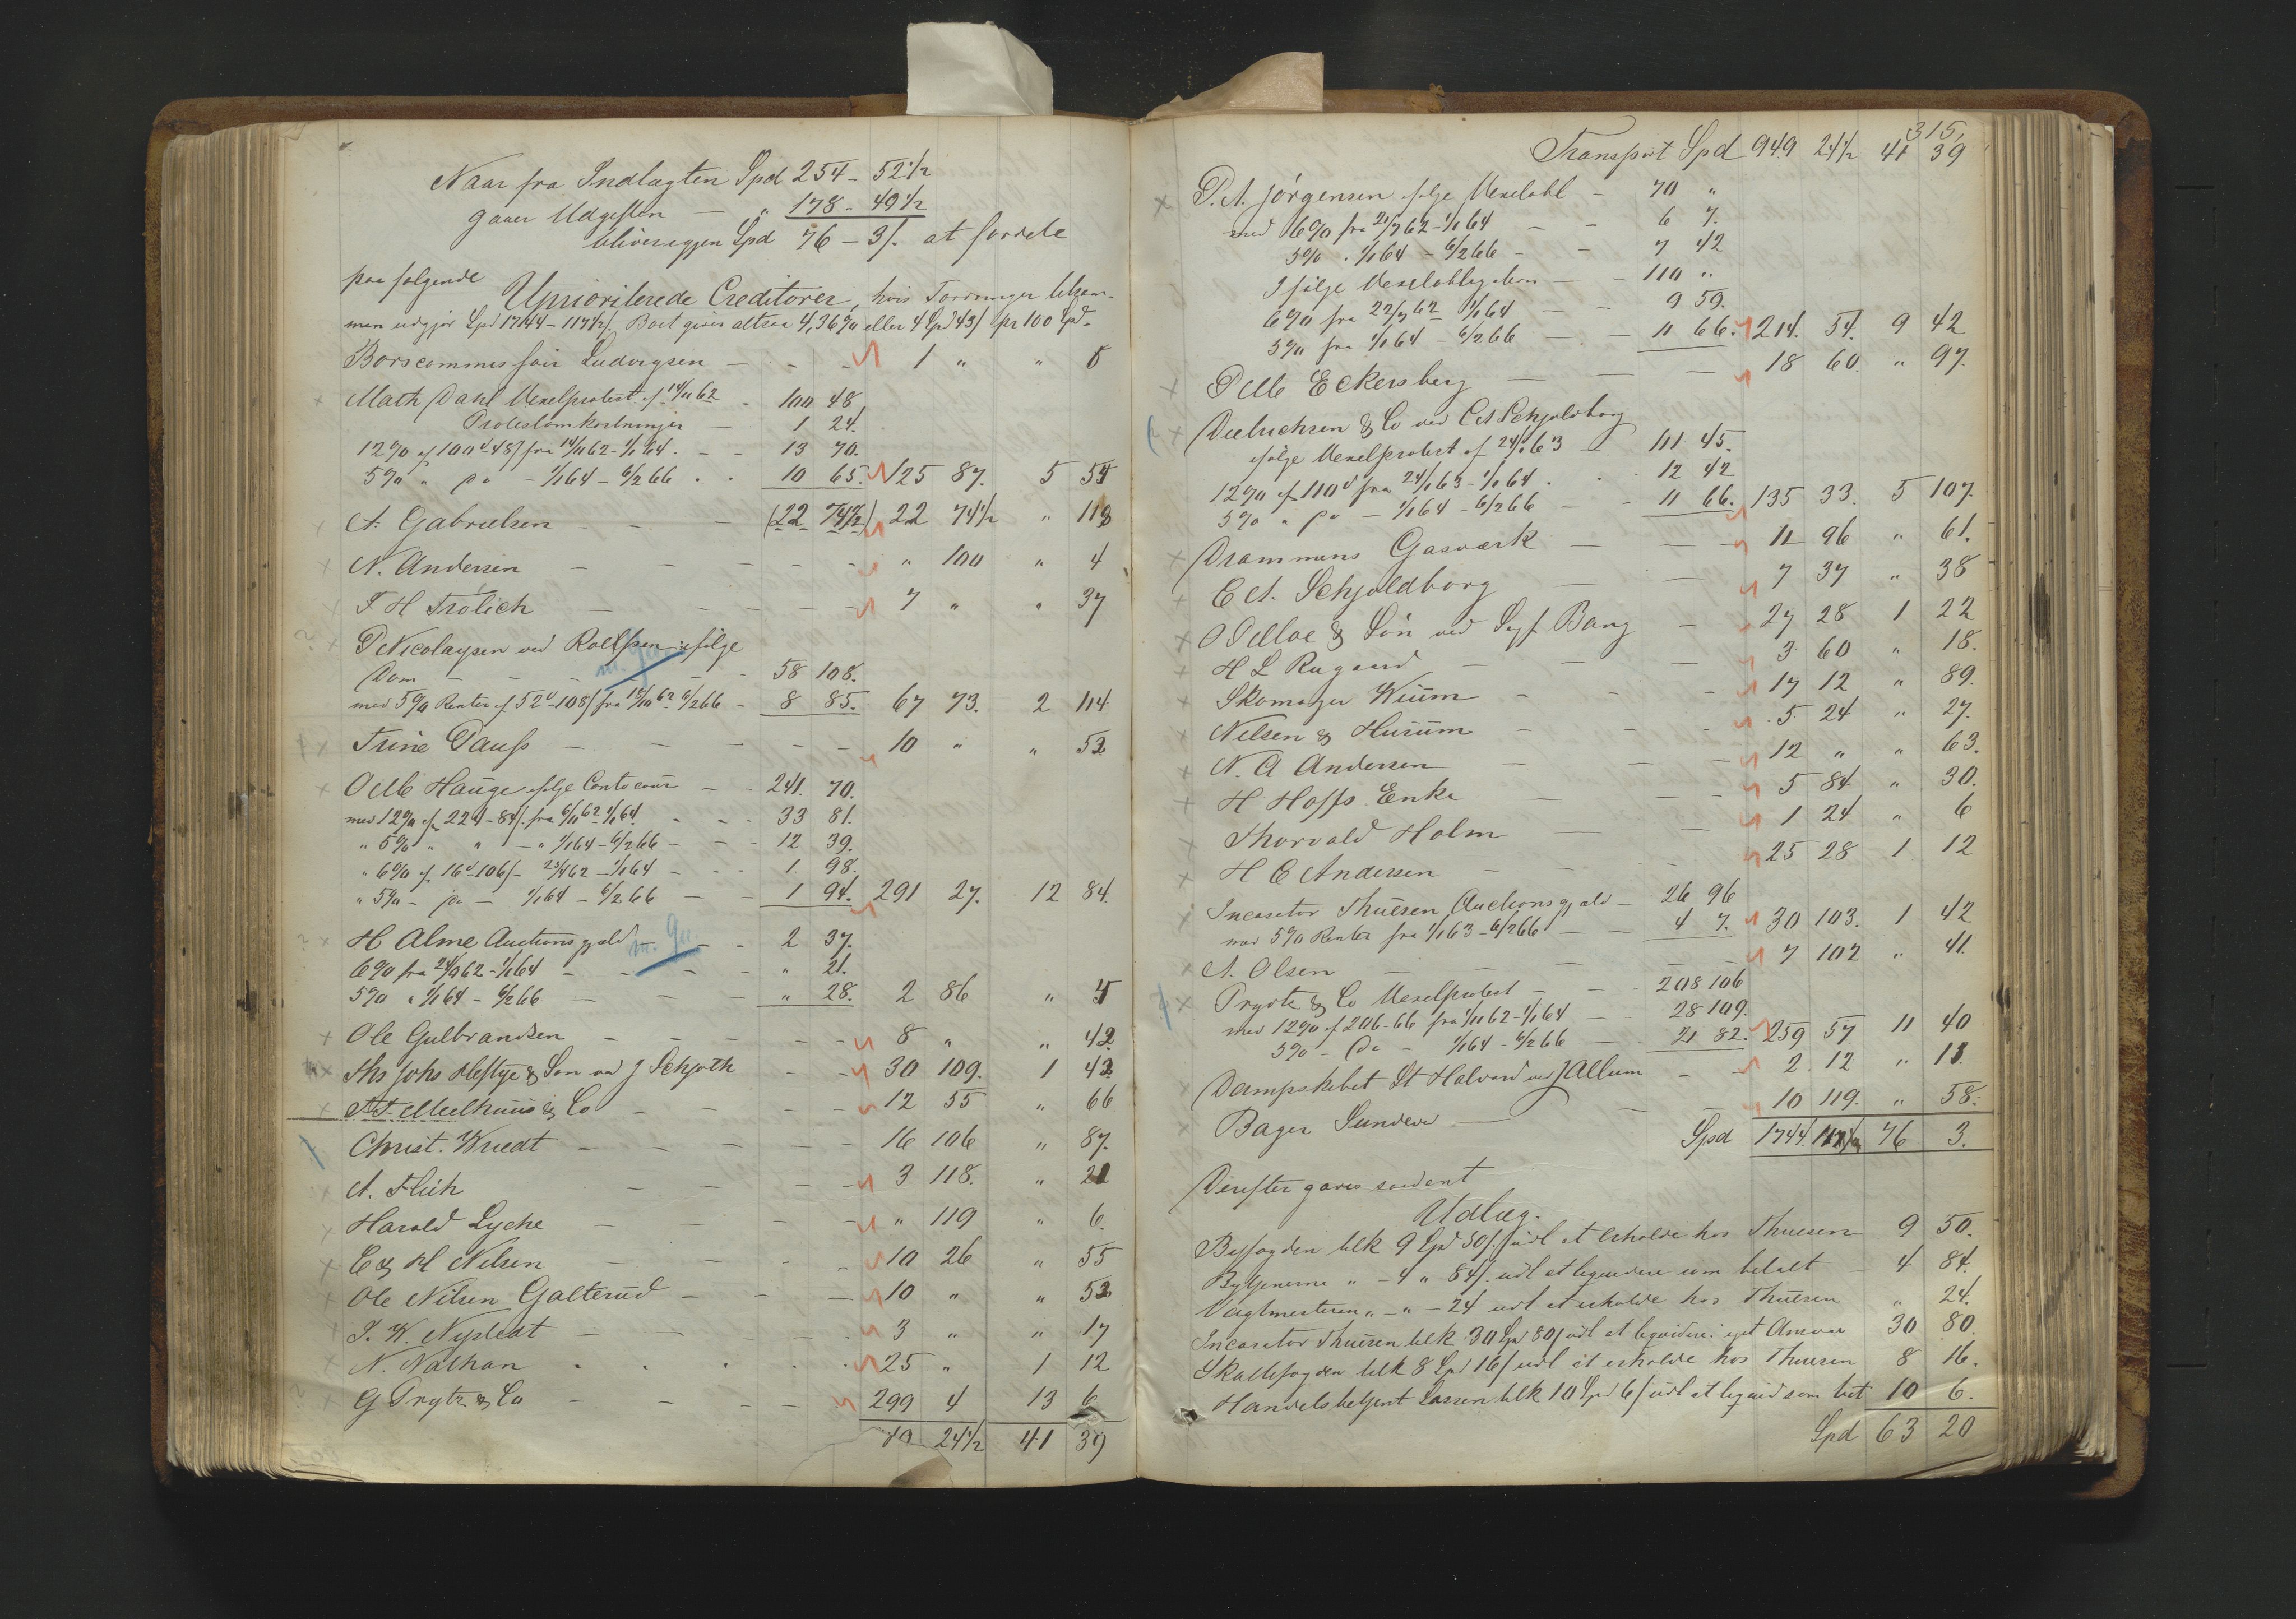 Naar fra Indtægten Spd 254 - 52 1/2
gaaer Udgiften — " 178 - 49 1/2
bliver igjen Spd 76 - 3 /. at fordele
paa følgende
Uprioriterede Creditorer, hvis Fordringer tilsam-
men udgjør Spd 1744 - 117 1/2 /. Boet giver altsaa 4,36 % eller 4 Spd 43 / pr 100 Spd.
Borscommissair Ludvigsen — - - 1 " " 5
Math Dahl Vexelprotest af 14/11 62 - 100 48
Protestomkostninger — 1 24.
12 % af 100 d 48 / fra 14/11 62 - 1/1 64 . - 13 70.
5 % " Do - 1/1 64 - 6/2 66 . . 10 65. 125 87. 5 55
A. Gabrielsen - - - (22 74 1/2) 22 74 1/2 " 118
N. Andersen - - - - - " 100 " 4
F. H Frölich - - - - 7 " " 37
P Nicolaysen ved Rolfsen ifølge
Dom - - - - 58 108.
med 5 % Renter af 52 d - 108 / fra 18/10 62 6/2 66 - 8 85. 67 73. 2 114
Trine Dauss - - - - - 10 " " 52
O Hauge ifølge Contocour - - 241. 70.
med 12 % af 224 - 84 /. fra 6/11 62 1/1 64. - - - 33 81.
" 5 % " " - " 1/1 64 - 6/2 66 - - - 12 39.
" 6 % af 16 d 106 / - 23/4 62 - 1/1 64 - - - 1 98.
" 5 % - Do - 1/1 64 - 6/2 66 - - 1 94. 291 27. 12 84.
H Alme Auctionsgjæld - - - 2 37.
6 % fra 24/9 62 - 1/1 64 - - - - " 21.
5 % " 1/1 64 - 6/2 66 - - - " 28. 2 86 " 5
Ole Gulbrandsen - - - - 8 " " 42
Ths Johs Heftye & Søn ved J Schjøth - - 30 109. 1 42
A. F. Meelhuus & Co - - - - 12 55 " 66
Christ. Wriedt - - - - - 16 106 " 87.
A. Flich - - - - 3 118. " 21
Harald Lyche - - - - " 119 " 6.
C & H Nilsen - - - - 10 26 " 55
Ole Nilsen Galterud - - - 10 " " 52
S. W. Nystedt - - - - 3 " " 17
N. Nathan . . . . . 25 " 1 12
G Prytz & Co - - - - - 299 4 13 6
24 1/2 41 39
315.
Transport Spd 949 24 1/2 41 39
P. A. Jørgensen ifølge Vexelobl - 70 "
med 6 % fra 21/7 62 - 1/1 64 - - 6 7.
5 % . 1/1 64 - 6/2 66 - - 7 42
Ifølge Vexelobligation - - 110 "
6 % fra 22/7 62 1/1 64 - - 9 59.
5 % fra 1/1 64 - 6/2 66 - - 11 66. 214. 54. 9 42
Eckersberg - - - 18 60. " 97.
Diedrichsen & Co ved C A Schjoldborg
ifølge Vexelprotest af 24/1 63 - 111 45.
12 % af 110 d fra 24/1 63 - 1/1 64 . . 12 42
5 % " Do - 1/1 64 - 6/2 66 - - 11 66. 135 33. 5 107.
Drammens Gasværk - - - 11 96 " 61.
C A. Schjoldborg - - 7 37 " 38
& Søn ved Sagf. Bang - 27 28 1 22
H L Rugaard - - - 3 60 " 18.
Skomager Wium - - - 17 12 " 89.
Nilsen & Hurum - - - 5 24 " 27.
N. A Andersen - - - 12 " " 63.
H Hoffs Enke - - - 5 84 " 30.
Thorvald Holm - - 1 24 " 6
H C Andersen - - - 25 28 1 12
Incasator Thuesen Auctionsgjæld - 26 96
med 5 % Renter fra 1/1 63 - 6/2 66 - - 4 7. 30 103. 1 42
A. Olsen - - - 7 102 " 41.
Prydtz & Co Vexelprotest - - - 208 106
med 12 % af 206 - 66 fra 1/11 62 - 1/1 64 - - 28 109.
5 % - Do - 1/1 64 - 6/2 66 - . 21 82. 259 57 11 40
Dampskibet St Halvard ved J Allum - - 2. 12 " 11.
Bager Sundene - - - 10 119. " 58.
Spd 1744. 117 1/2 76 3.
Derefter gaves saadant
Udlæg.
Byfogden tilk 9 Spd 50 /. udl at erholde hos Thuesen 9 50.
Bytjenerne " - 4 " - 84 /. udl at liqvidere som betalt - 4 84.
Vagtmesteren " - " - 24 udl at erholde hos Thuesen " 24.
Incasator Thuesen tilk 30 Spd 80 / udl at liqvidere i eget Ansvar 30 80.
Skattefogden tilk 8 Spd 16 / udl at erholde hos Thuesen 8 16.
Handelsbetjent Lassen tilk 10 Spd 6 / udl at liqvid som bet 10 6.
Spd 63 20